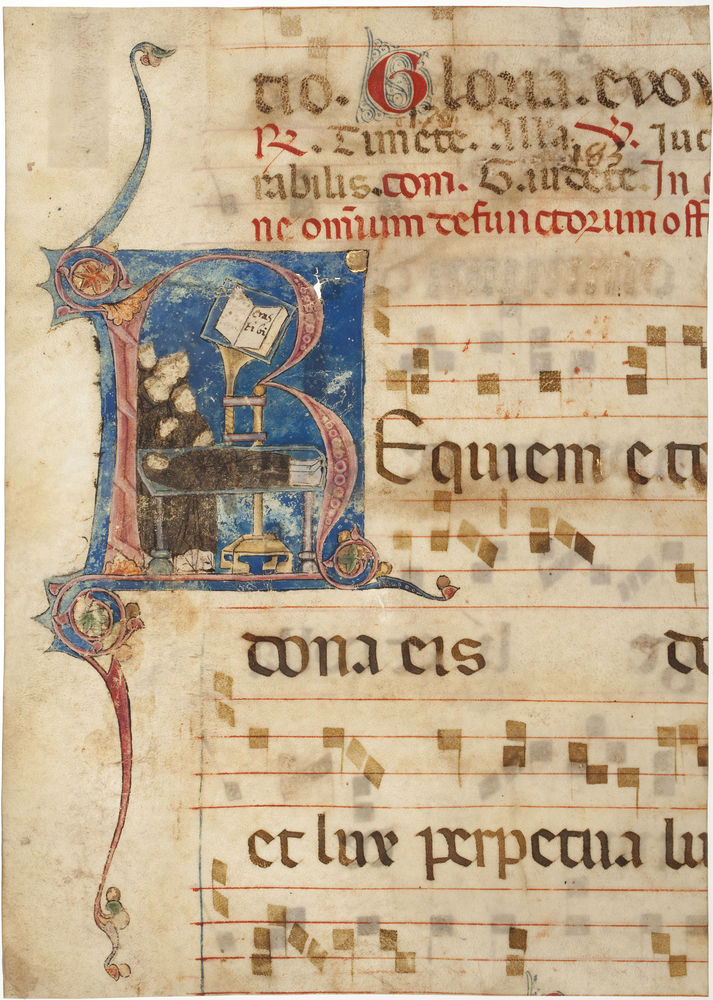 tio. Gloria. evov
R. Timete. Alla. V. Juc
183
rabilis. com. Gaudete. In
ne omnium defunctorum off
eras
tibi
REquiem e te
dona eis do
et lux perpetua lu